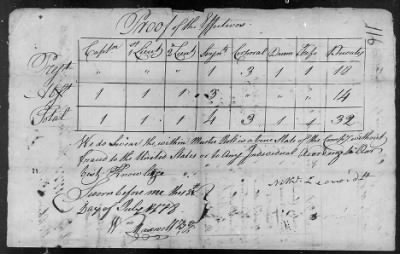 Proof of the Effectives
116
Captn 1st Lieut 2 Lieut Sergnts Corporal Drum Fife Privates
Prest " " " 1 3 1 1 18
Abst 1 1 1 3 " " " 14
Total 1 1 1 4 3 1 1 32
We do Swear the within Muster Roll is a true State of the Compy without
fraud to the United States or to Any Individual According to Our
best Knowledge
Sworn before me this
Day of July 1778
Wm Maxwell